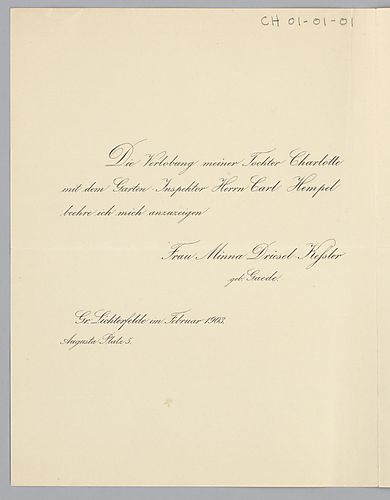 CH 01-01-01
Die Verlobung meiner Tochter Charlotte
mit dem Garten Inspektor Herrn Carl Hempel
beehre ich mich anzuzeigen
Frau Minna Driesel-Kefsler
geb. Gaede.
Gr. Lichterfelde im Februar 1903.
Augusta Platz 5.